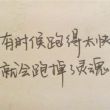 有时候跑得太快
就会跑掉了灵魂